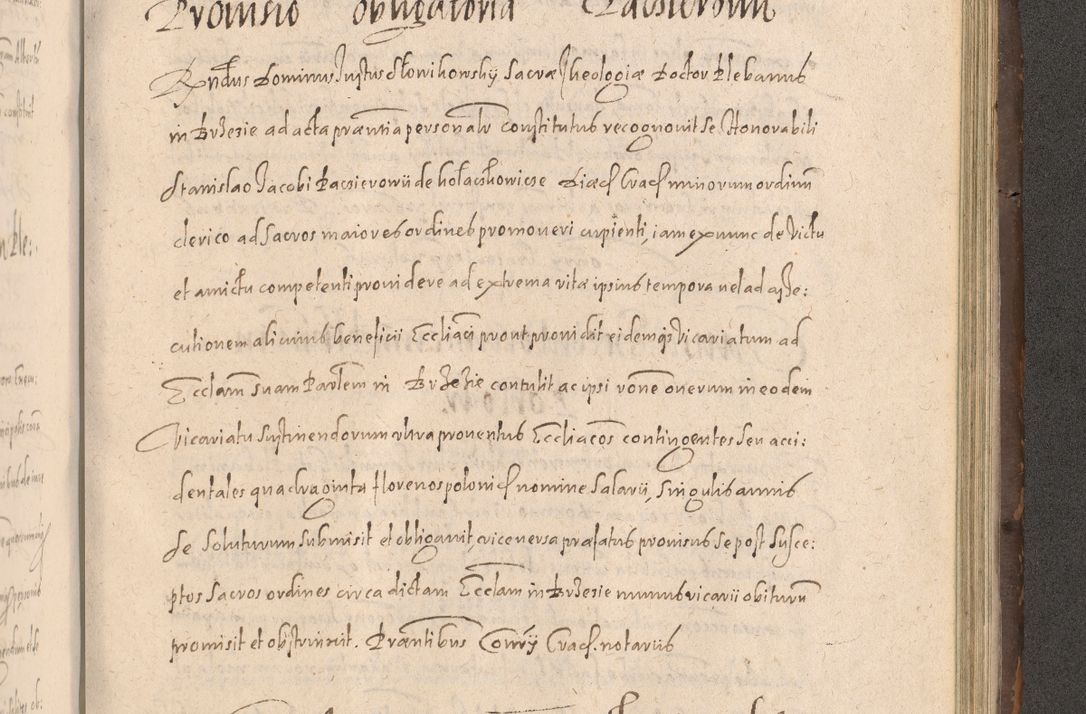 Provisio obligatoria Pacsierowii
Rndus Dominus Justus Słowikowsky Sacræ Theologiæ Doctor Plebanus
in Brzezie ad acta præntia personalr constitutus recognovit se Honorabili
Stanislao Jacobi Pacsierowii de kołaczkowicze Diæc Crac minorum ordinum
clerico ad sacros maiores ordines promoveri cupienti, iam ex nunc de victu
et amictu competenti providere ad extrema vitæ ipsius tempora vel ad asse:
cutionem alicuius beneficii Eccliaci prout providit eidemqз vicariatum ad
Ecclam suam Parlem in Brzezie contulit ac ipsi rone onerum in eodem
Vicariatu sustinendorum ultra proventus Eccliacos contingentes seu acci:
dentales quadraginta florenos poloni nomine salarii, singulis annis
se soluturum submisit et obligavit, vice versa præfatus provisus se post susce:
ptos sacros ordines circa dictam Ecclam in Brzezie munus vicarii obiturum
promisit et obstrinxit. Præntibus Conrij Crac. notariis